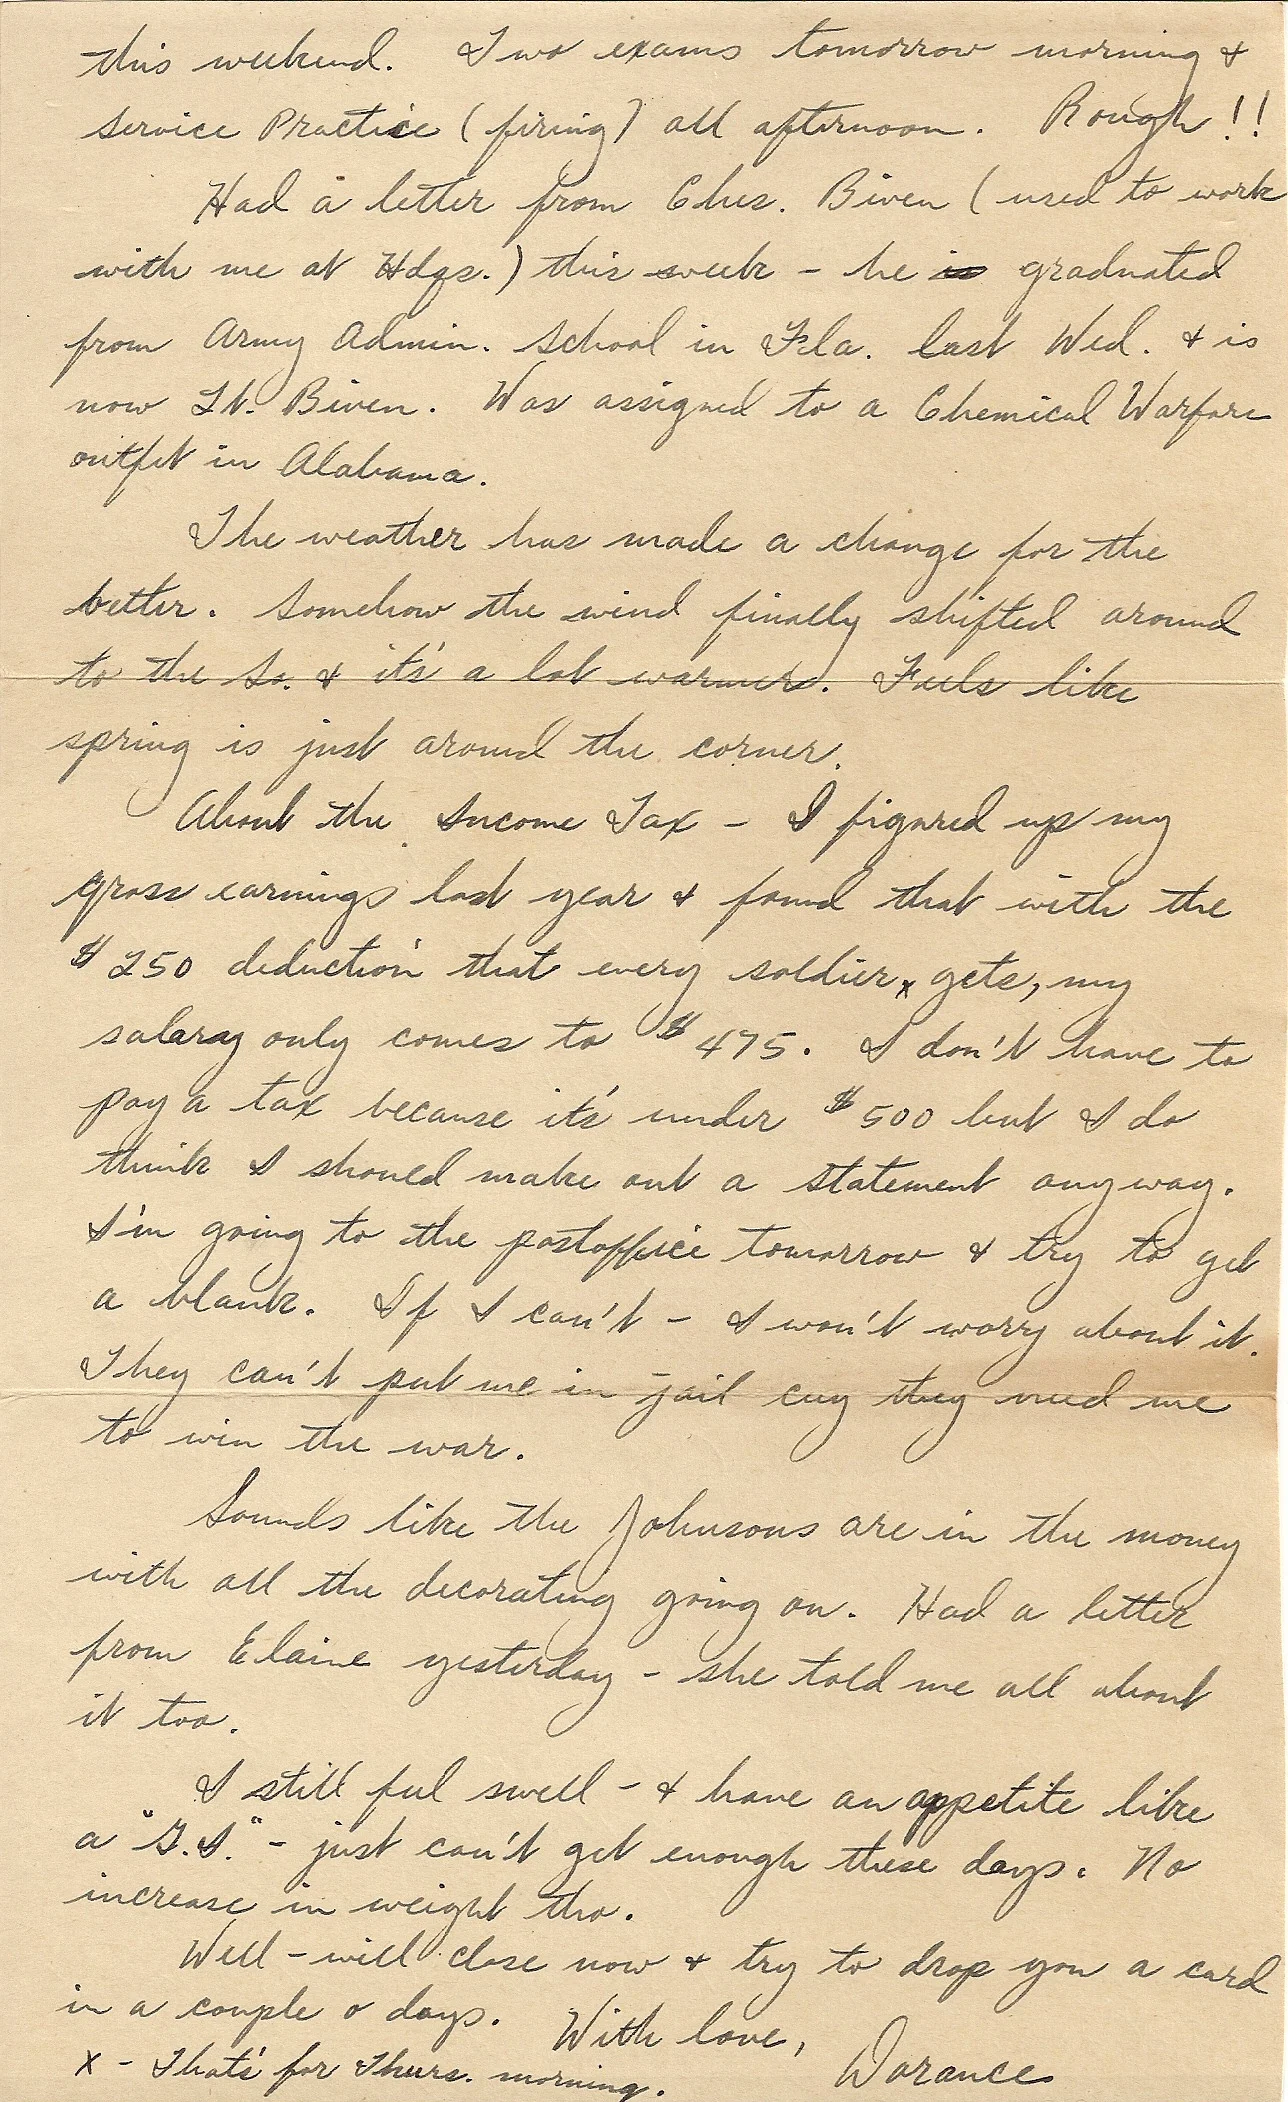 this weekend. Two exams tomorrow morning &
Service Practice (firing) all afternoon. Rough!!
Had a letter from Chas. Biven (used to work
with me at Hdqs.) this week - he is graduated
from Army Admin. School in Fla. last Wed. & is
now Lt. Biven. Was assigned to a Chemical Warfare
outfit in Alabama.
The weather has made a change for the
better. Somehow the wind finally shifted around
to the So. & it's a lot warmer. Feels like
spring is just around the corner.
About the Income Tax - I figured up my
gross earnings last year & found that with the
$250 deduction that every soldier x gets, my
salary only comes to $475. I don't have to
pay a tax because it's under $500 but I do
think I should make out a statement anyway.
I'm going to the postoffice tomorrow & try to get
a blank. If I can't - I won't worry about it.
They can't put me in jail cuz they need me
to win the war.
Sounds like the Johnsons are in the money
with all the decorating going on. Had a letter
from Elaine yesterday - she told me all about
it too.
I still feel swell - & have an appetite like
a "G.I." - just can't get enough these days. No
increase in weight tho.
Well - will close now & try to drop you a card
in a couple o days. With love,
x - That's for Thurs. morning. Dorance